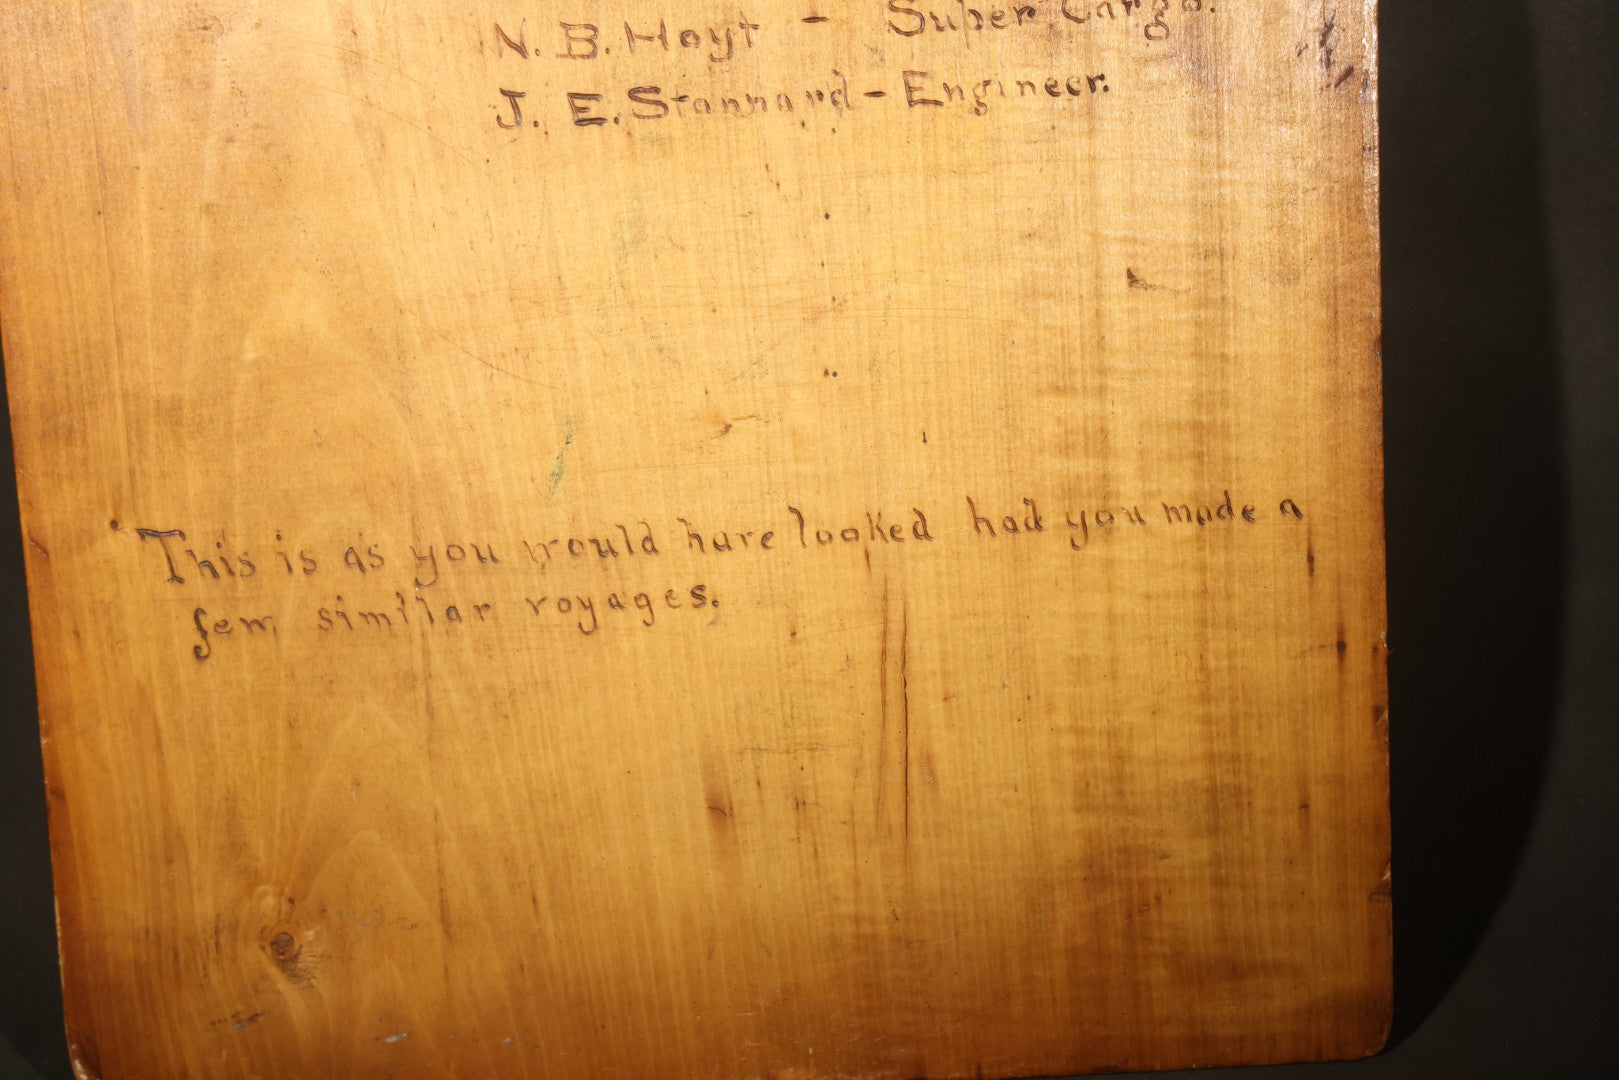 N. B. Hoyt - Super Cargo.
J. E. Stannard - Engineer.
This is as you would have looked had you made a
few similar voyages.